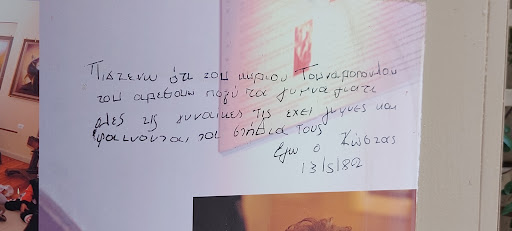 Πιστενω ότι τον κύριον Τουναροπουλον
του αρεσουν πολύ τα γυμνα γιατι
ολες τις γυναικες τις εχει γυμνες και
φαινονται τα στηθια τους
Εγω ο Κώστας
13/5/82